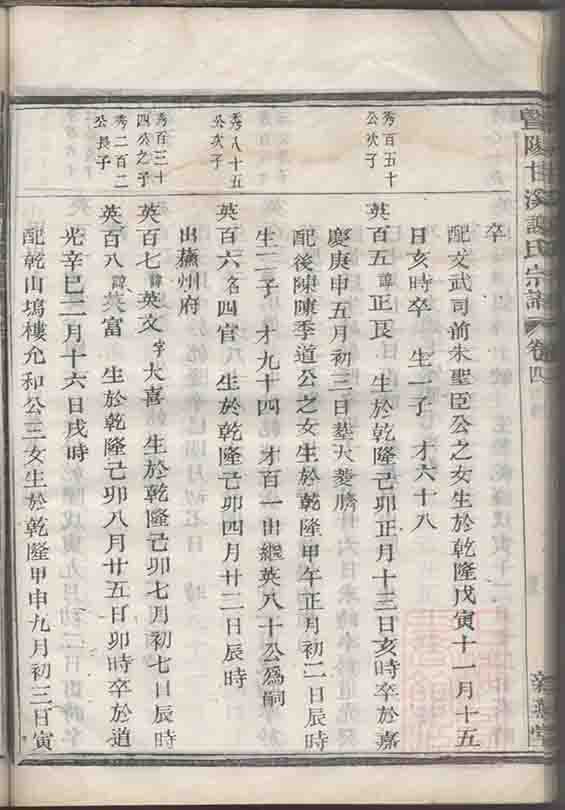 暨陽甘溪謝氏宗譜 卷四
卒
配文武司前朱聖臣公之女生於乾隆戊寅十一月十五
日亥時卒 生一子 才六十八
秀百五十
公次子
英百五諱正艮 生於乾隆己卯正月十三日亥時卒於嘉
慶庚申五月初三日塟大菱臍
配後陳陳季道公之女生於乾隆甲午正月初二日辰時
生二子 才九十四 才百一出繼英八十公爲嗣
秀八十五
公次子
英百六名四官 生於乾隆己卯四月廿二日辰時
出蘓州府
秀百三十
四公之子
英百七諱英文字大喜 生於乾隆己卯七月初七日辰時
秀二百二
公長子
英百八諱英富 生於乾隆己卯八月廿五日卯時卒於道
光辛巳二月十六日戌時
配乾山塢樓允和公三女生於乾隆甲申九月初三日寅